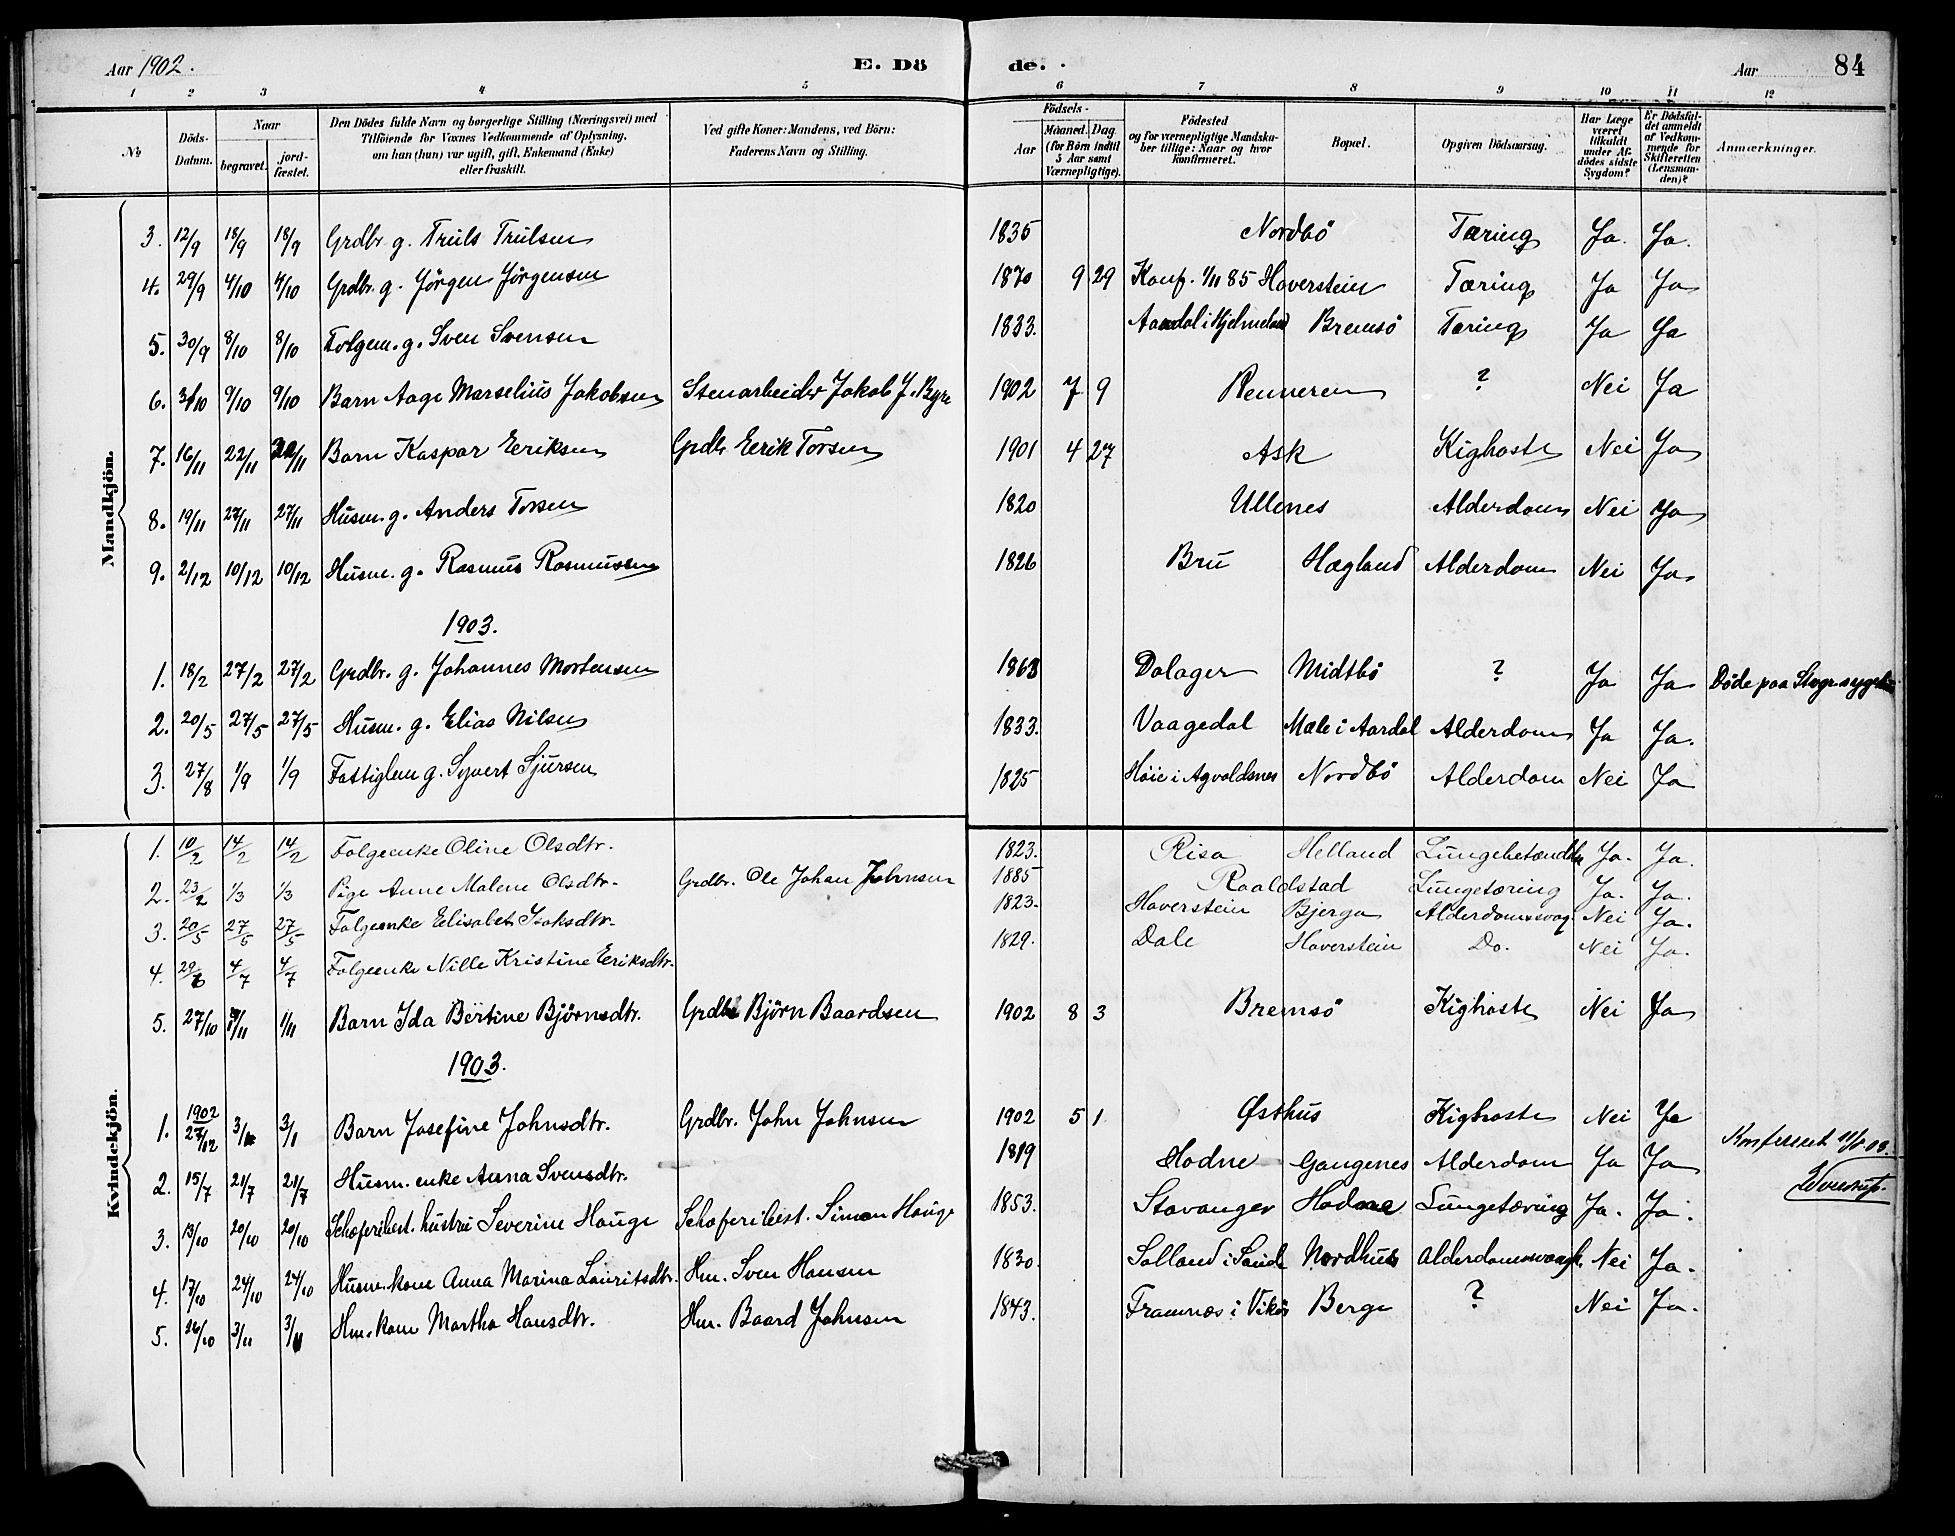 Aar 1902. E. Dö de. Aar 84
1 2 3 4 5 6 7 8 9 10 11 12
№ Döds-Datum. Naar begravet. jordfæstet. Den Dödes fulde Navn og borgerlige Stilling (Næringsvei) med Tilföiende for Voxnes Vedkommende af Oplysning, om han (hun) var ugift, gift, Enkemand (Enke) eller fraskilt. Ved gifte Koner: Mandens, ved Börn: Faderens Navn og Stilling. Födsels- Aar Maaned. Dag (for Börn indtil 5 Aar samt Værnepligtige). Födested og for værnepligtige Mandskaber tillige: Naar og hvor konfirmeret. Bopæl. Opgiven Dödsaarsag. Har Læge været tilkaldt under Afdödes sidste Sygdom? Er Dödsfaldet anmeldt af Vedkommende for Skifteretten (Lensmanden)? Anmærkninger.
Mandkjön.
3. 12/9 18/9 18/9 Grdbr. g. Truls Trulsen 1835 Nordbö Tæring Ja. Ja.
4. 29/9 4/10 4/10 Grdbr. g. Jörgen Jörgensen 1870 9 29 Konf. 1/11 85 Haverstein Tæring Ja Ja
5. 30/9 8/10 8/10 Folgem. g. Sven Svensen 1833. Aardal i Hjelmeland Bremsö Tæring Ja Ja
6. 3/10 9/10 9/10 Barn Aage Marselius Jakobsen Stenarbeider Jakob J. Byre 1902 7 9 Renneren ? Nei Ja
7. 16/11 22/11 22/11 Barn Kaspar Eeriksen Grdb. Eerik Torsen 1901 4 27 Ask Kighoste Nei Ja
8. 19/11 27/11 27/11 Husm. g. Anders Torsen 1820 Ullenes Alderdom Nei Ja
9. 2/12 10/12 10/12 Husm. g. Rasmus Rasmussen 1826 Bru Hægland Alderdom Nei Ja
1903.
1. 18/2 27/2 27/2 Grdbr. g. Johannes Mortensen 1863 Dalager Midtbö ? Ja Ja Döde paa
2. 20/5 27/5 27/5 Husm. g. Elias Nilsen 1833. Vaagedal Mæle i Aardal Alderdom Ja Ja.
3. 27/8 1/9 1/9 Fattiglem g. Syvert Sjursen 1825 Höie i Agvaldsnes Nordbö Alderdom Nei Ja
Kvindekjön.
1. 10/2 14/2 14/2 Folgeenke Oline Olsdtr. 1823. Risa Helland Lungebetændelse Ja. Ja.
2. 23/2 1/3 1/3 Pige Anne Malene Olsdtr. Grdbr. Ole Johan Johnsen 1885 Raaldstad Lungetæring Ja. Ja.
3. 20/5 27/5 27/5 Folgeenke Eelisabet Isaksdtr. 1823. Haverstein Bjerga Alderdomssvag. Nei Ja.
4. 29/6 4/7 4/7 Folgeenke Nille Kristine Eeriksdtr. 1829. Dale Haverstein Do. Nei Ja.
5. 27/10 1/11 1/11 Barn Ida Bertine Björnsdtr. Grdbr. Björn Baardsen 1902 8 3 Bremsö Kighoste Nei Ja
1903.
1. 1902 27/12 3/1 3/1 Barn Josefine Johnsdtr. Grdbr. John Johnsen 1902 5 1 Østhus Kighoste Nei Ja
2. 15/7 21/7 21/7 Husm. enke Anna Svensdtr. 1819 Hodne Gangenes Alderdom Ja Ja
3. 13/10 20/10 20/10 Schæferibest. hustru Severine Hauge Schæferibest. Simon Hauge 1853. Stavanger Hodne Lungetæring Ja. Ja.
4. 17/10 24/10 24/10 Husm. kone Anna Marina Lauritsdtr. Hm. Sven Hansen 1830. Salland i Sand Nordhus Alderdomssvagh. Nei Ja.
5. 26/10 3/11 3/11 Hm. kone Martha Hansdtr. Hm. Baard Johnsen 1843. Framnæs i Vikör Berge ? Nei Ja.